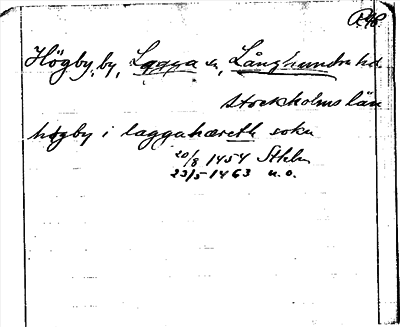 Högby, by, Lagga sn, Långhundra hd
Stockholms län
høgby i laggahæreth sokn
20/8 1454 Sthlm
23/5 1463 u. o.